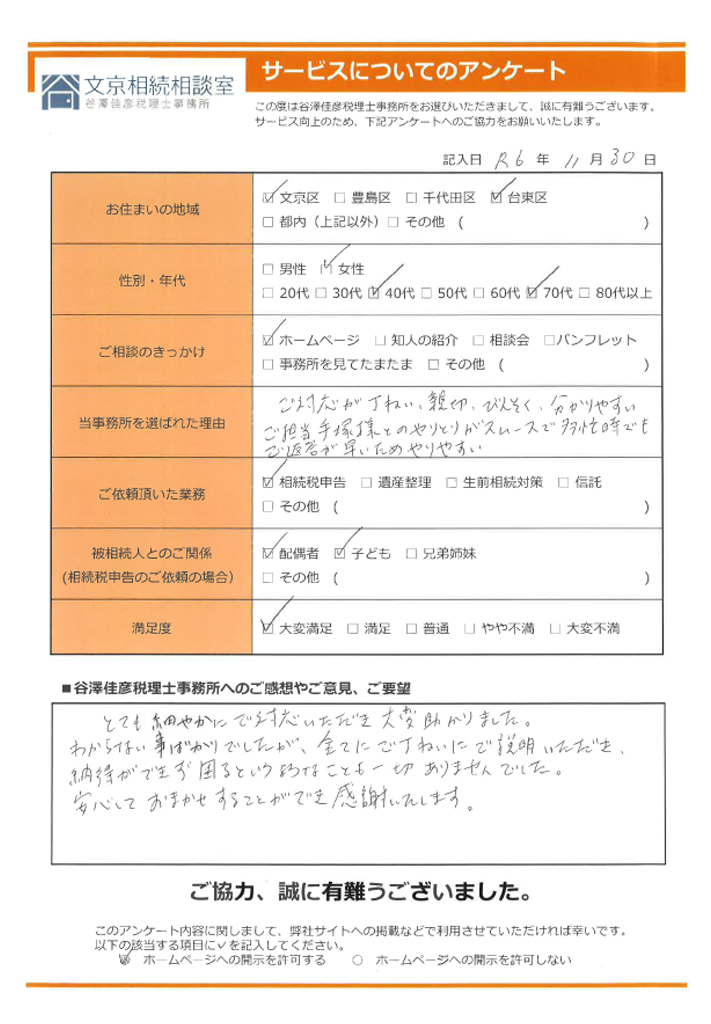 文京相続相談室
谷澤佳彦税理士事務所
サービスについてのアンケート
この度は谷澤佳彦税理士事務所をお選びいただきまして、誠に有難うございます。
サービス向上のため、下記アンケートへのご協力をお願いいたします。
記入日 R6 年 11 月 30 日
お住まいの地域
☑ 文京区 □ 豊島区 □ 千代田区 ☑ 台東区
□ 都内（上記以外）□ その他 ( )
性別・年代
□ 男性 ☑ 女性
□ 20代 □ 30代 ☑ 40代 □ 50代 □ 60代 ☑ 70代 □ 80代以上
ご相談のきっかけ
☑ ホームページ □ 知人の紹介 □ 相談会 □パンフレット
□ 事務所を見てたまたま □ その他 ( )
当事務所を選ばれた理由
ご対応が丁ねい、親切、びんそく、分かりやすい
ご担当手塚様とのやりとりがスムースで多忙時でも
ご返答が早いためやりやすい
ご依頼頂いた業務
☑ 相続税申告 □ 遺産整理 □ 生前相続対策 □ 信託
□ その他 ( )
被相続人とのご関係
(相続税申告のご依頼の場合)
☑ 配偶者 ☑ 子ども □ 兄弟姉妹
□ その他 ( )
満足度
☑ 大変満足 □ 満足 □ 普通 □ やや不満 □ 大変不満
■谷澤佳彦税理士事務所へのご感想やご意見、ご要望
とても細やかにご対応いただき大変助かりました。
わからない事ばかりでしたが、全てにご丁ねいにご説明いただき、
納得ができず困るというようなことも一切ありませんでした。
安心しておまかせすることができ感謝いたします。
ご協力、誠に有難うございました。
このアンケート内容に関しまして、弊社サイトへの掲載などで利用させていただければ幸いです。
以下の該当する項目に✓を記入してください。
☑ ホームページへの開示を許可する ○ ホームページへの開示を許可しない